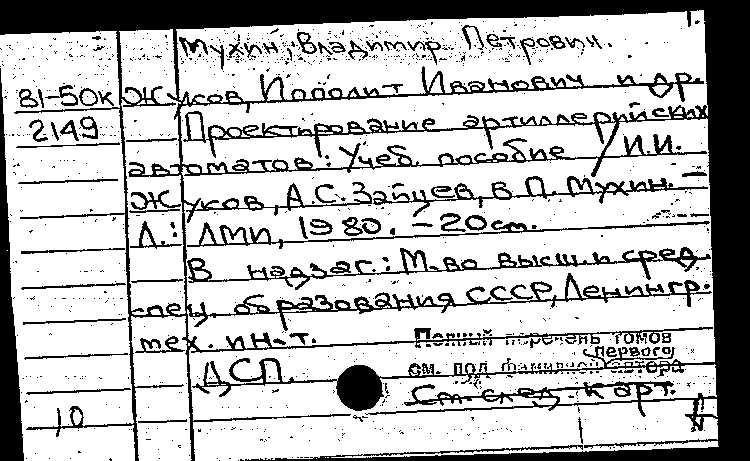 1.
Мухин, Владимир Петрович.
81-50к Жуков, Иполит Иванович и др.
2149 Проектирование артиллерийских
автоматов: Учеб. пособие / И.И.
Жуков, А.С. Зайцев, В.П. Мухин. –
Л.: ЛМИ, 1980. – 20 см.
В надзаг.: М-во высш. и сред.
спец. образования СССР, Ленингр.
мех. ин-т.
Полный перечень томов
первого
ДСП. см. под фамилией автора
См. след. карт.
10